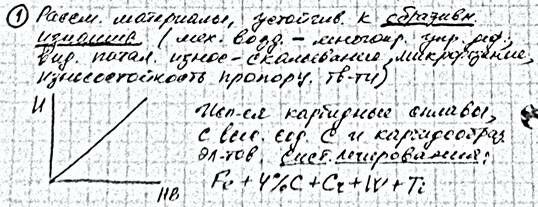 ① Рассм. материалы, устойчив. к абразивн.
изнашив. (мех. возд. – многокр. упр. деф.,
вид. патал. износ – скалывание, микрорезание,
износостойкость пропорц. тв-ти)
И
НВ
Исп-ся карбидные сплавы,
с выс. сод. С и карбидообраз.
эл-тов. Сист. легирования:
Fe + 4%C + Cr + W + Ti